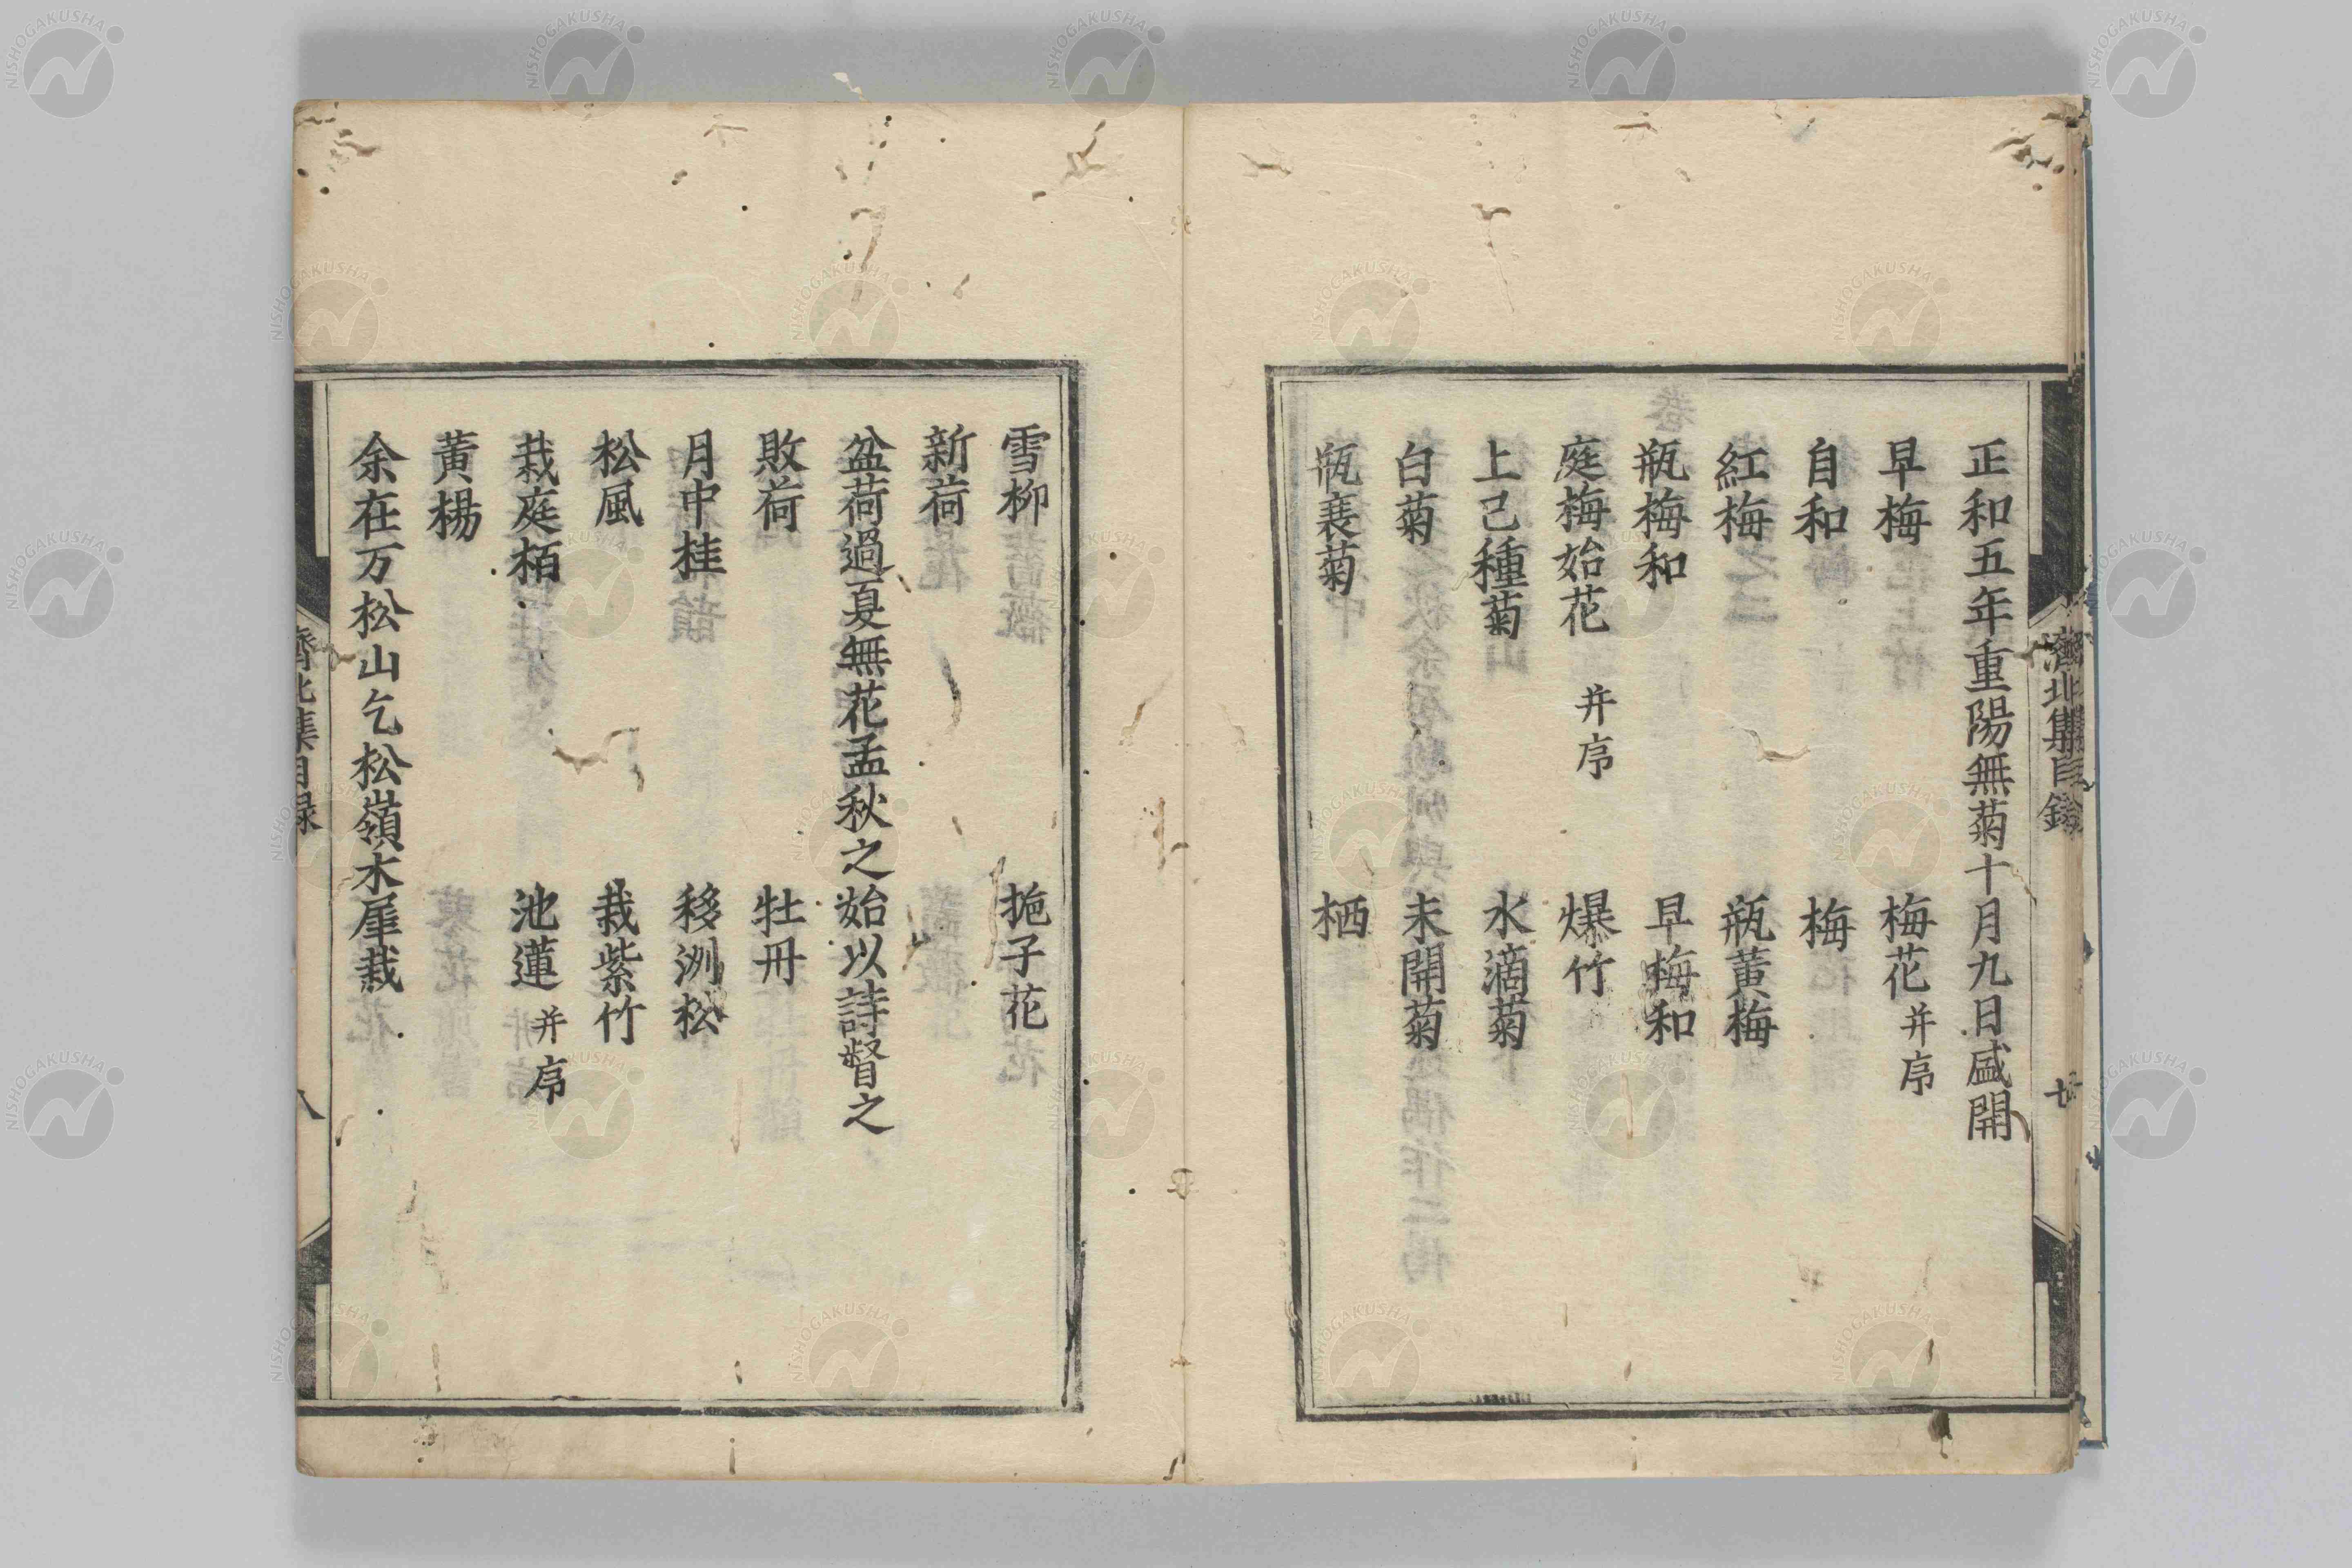 正和五年重陽無菊十月九日盛開
早梅　梅花并序
自和　梅
紅梅　瓶黃梅
瓶梅和　早梅和
庭梅始花　并序　爆竹
上己種菊　水滴菊
白菊　未開菊
瓶衰菊　栖
雪柳　梔子花
新荷
盆荷過夏無花孟秋之始以詩督之
敗荷　牡丹
月中桂　移洲松
松風　栽紫竹
栽庭栢　池蓮并序
黃楊
余在万松山乞松嶺木犀栽
濟北集目録　八
NISHOGAKUSHA